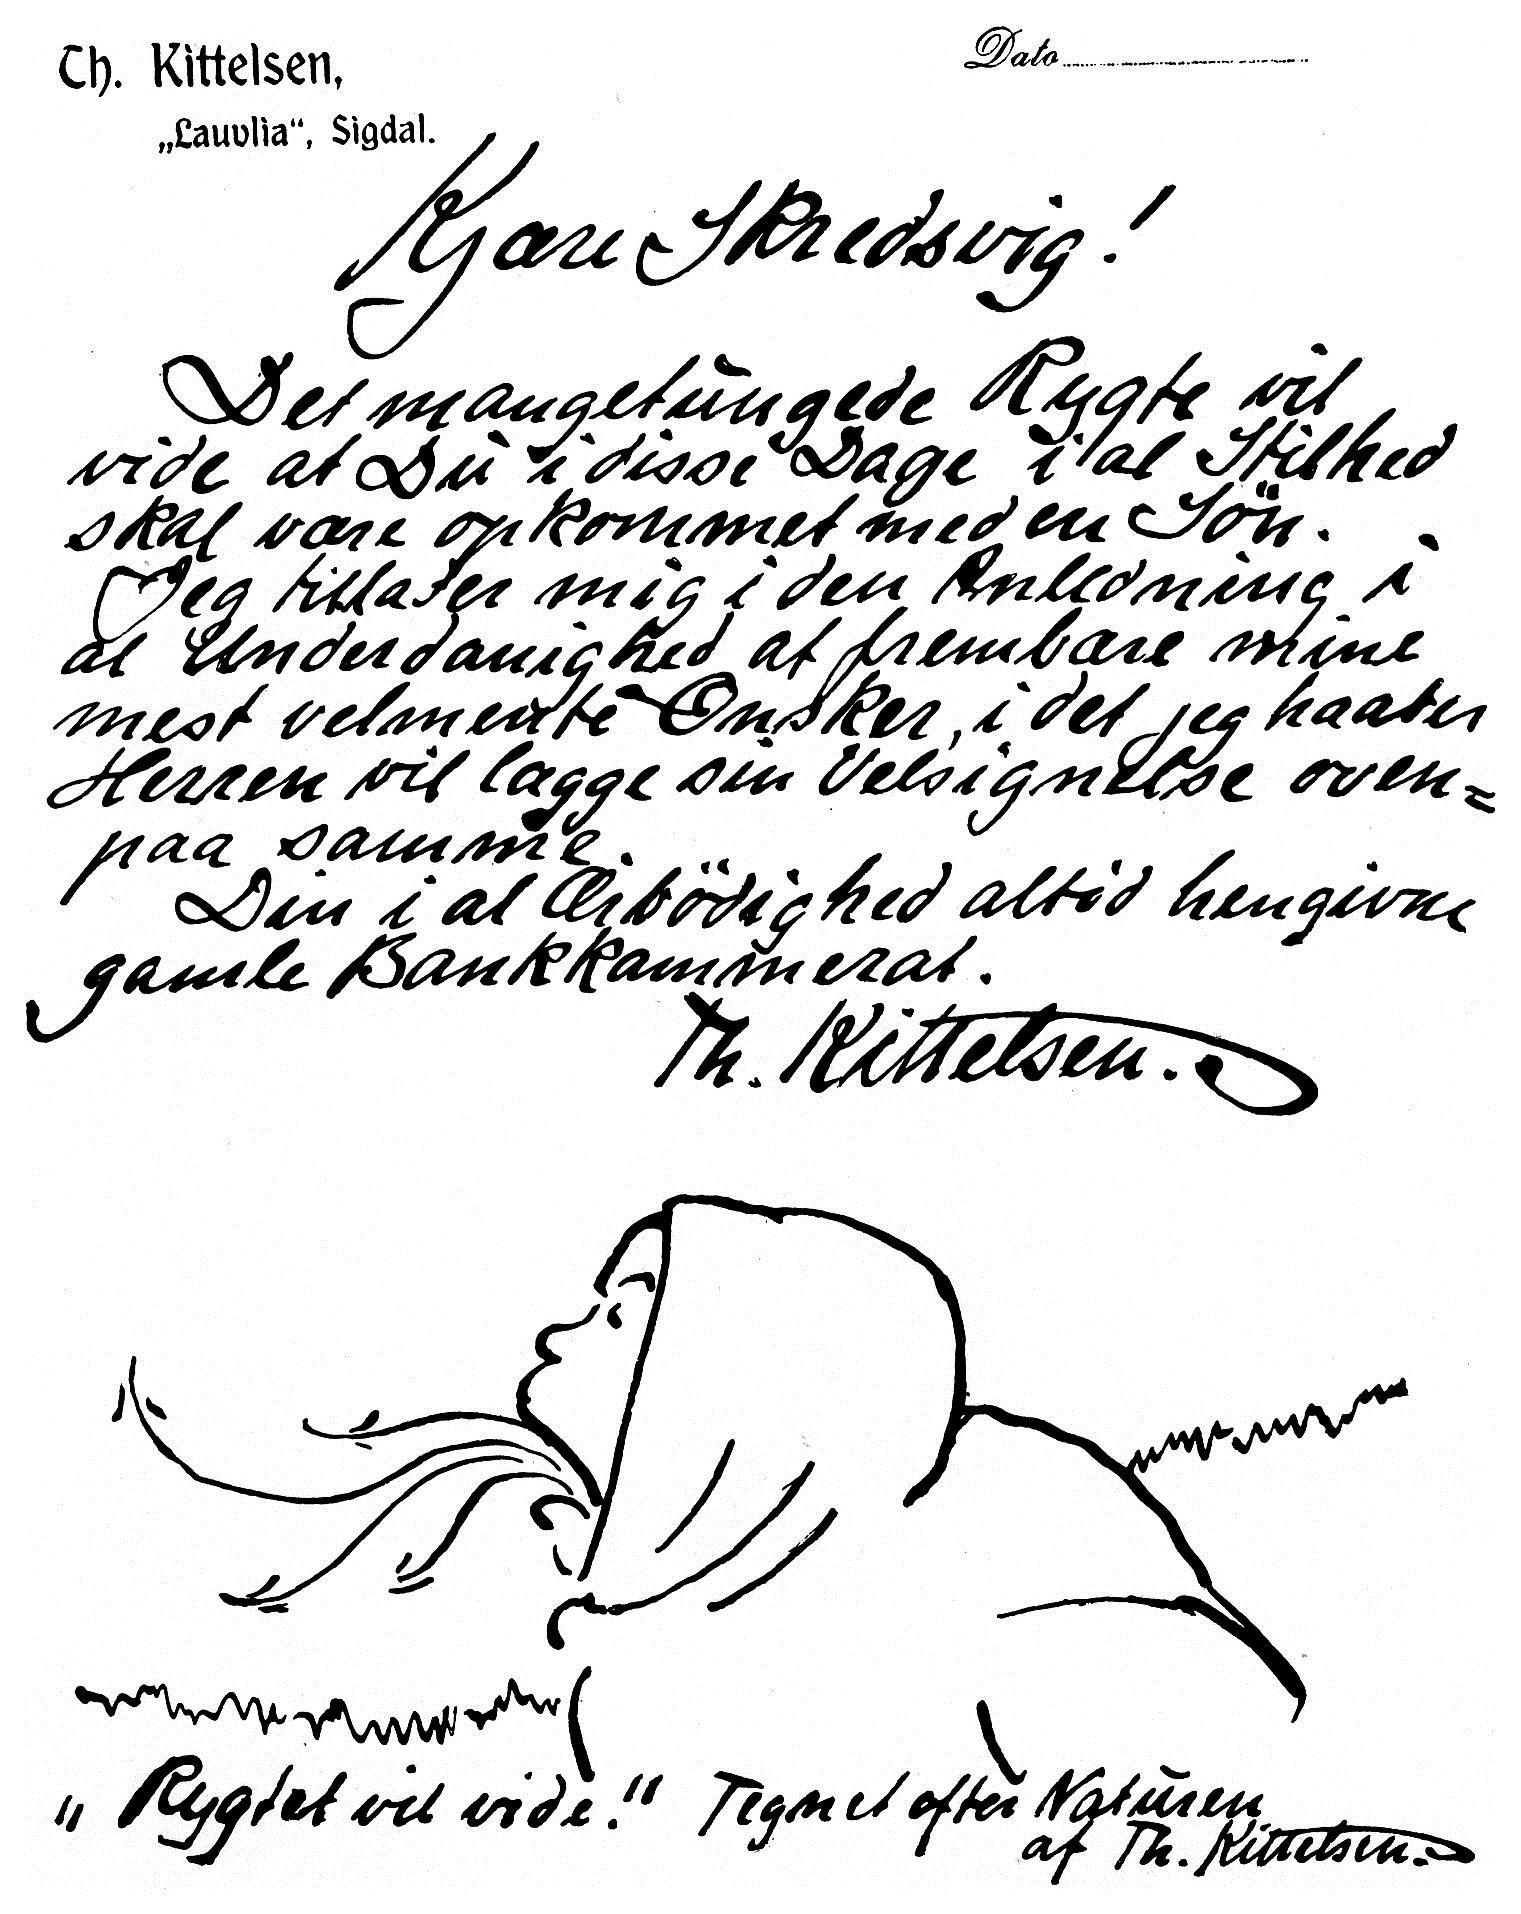 Th. Kittelsen,
Dato
„Lauvlia“, Sigdal.
Kjære Skredsvig!
Det mangetungede Rygte vil
vide at Du i disse Dage i al Stilhed
skal være opkommet med en Sön.
Jeg tillater mig i den Anledning i
al Underdanighed at frembære mine
mest velmente Ønsker, i det jeg haaber
Herren vil lægge sin Velsignelse oven=
paa samme.
Din i al Ærbödighed altid hengivne
gamle Bankkammerat.
Th. Kittelsen.
„Rygtet vil vide.“ Tegnet efter Naturen
af Th. Kittelsen.